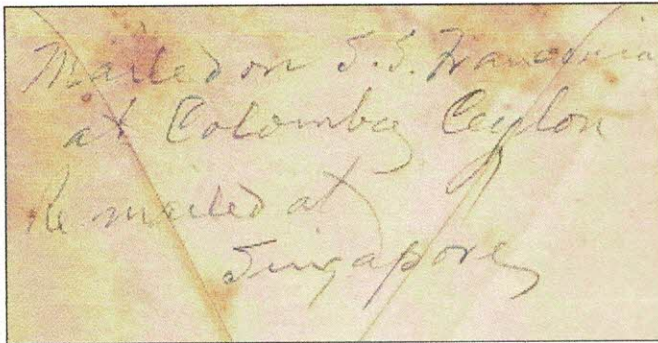 Mailed on S.S. Franconia
at Colombo, Ceylon
Re mailed at
Singapore,